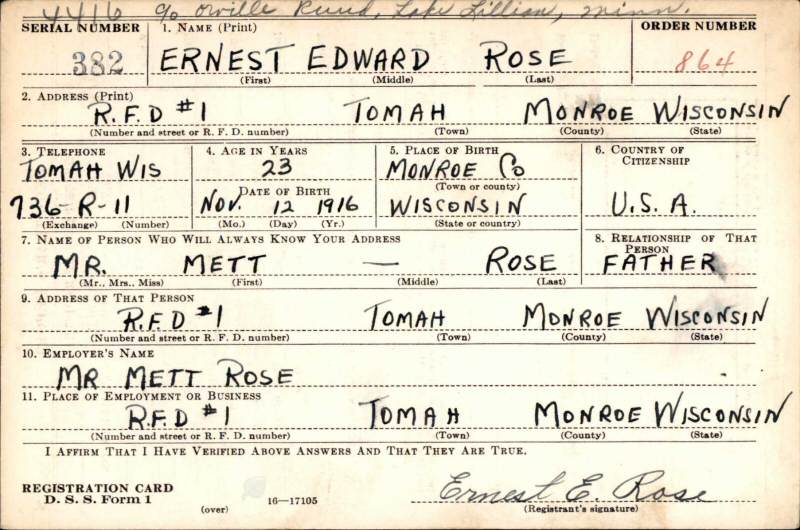 4416 % Orville Ruud, Lake Lillian, Minn.
SERIAL NUMBER 1. NAME (Print) ORDER NUMBER
382 ERNEST EDWARD ROSE 864
(First) (Middle) (Last)
2. ADDRESS (Print)
R.F.D #1 TOMAH MONROE WISCONSIN
(Number and street or R. F. D. number) (Town) (County) (State)
3. TELEPHONE 4. AGE IN YEARS 5. PLACE OF BIRTH 6. COUNTRY OF CITIZENSHIP
TOMAH WIS 23 MONROE CO
DATE OF BIRTH (Town or county)
736-R-11 NOV. 12 1916 WISCONSIN U.S.A.
(Exchange) (Number) (Mo.) (Day) (Yr.) (State or country)
7. NAME OF PERSON WHO WILL ALWAYS KNOW YOUR ADDRESS 8. RELATIONSHIP OF THAT PERSON
MR. METT — ROSE FATHER
(Mr., Mrs., Miss) (First) (Middle) (Last)
9. ADDRESS OF THAT PERSON
R.F.D #1 TOMAH MONROE WISCONSIN
(Number and street or R. F. D. number) (Town) (County) (State)
10. EMPLOYER'S NAME
MR METT ROSE
11. PLACE OF EMPLOYMENT OR BUSINESS
R.F.D #1 TOMAH MONROE WISCONSIN
(Number and street or R. F. D. number) (Town) (County) (State)
I AFFIRM THAT I HAVE VERIFIED ABOVE ANSWERS AND THAT THEY ARE TRUE.
REGISTRATION CARD
D. S. S. Form 1 (over) 16—17105 Ernest E. Rose
(Registrant's signature)